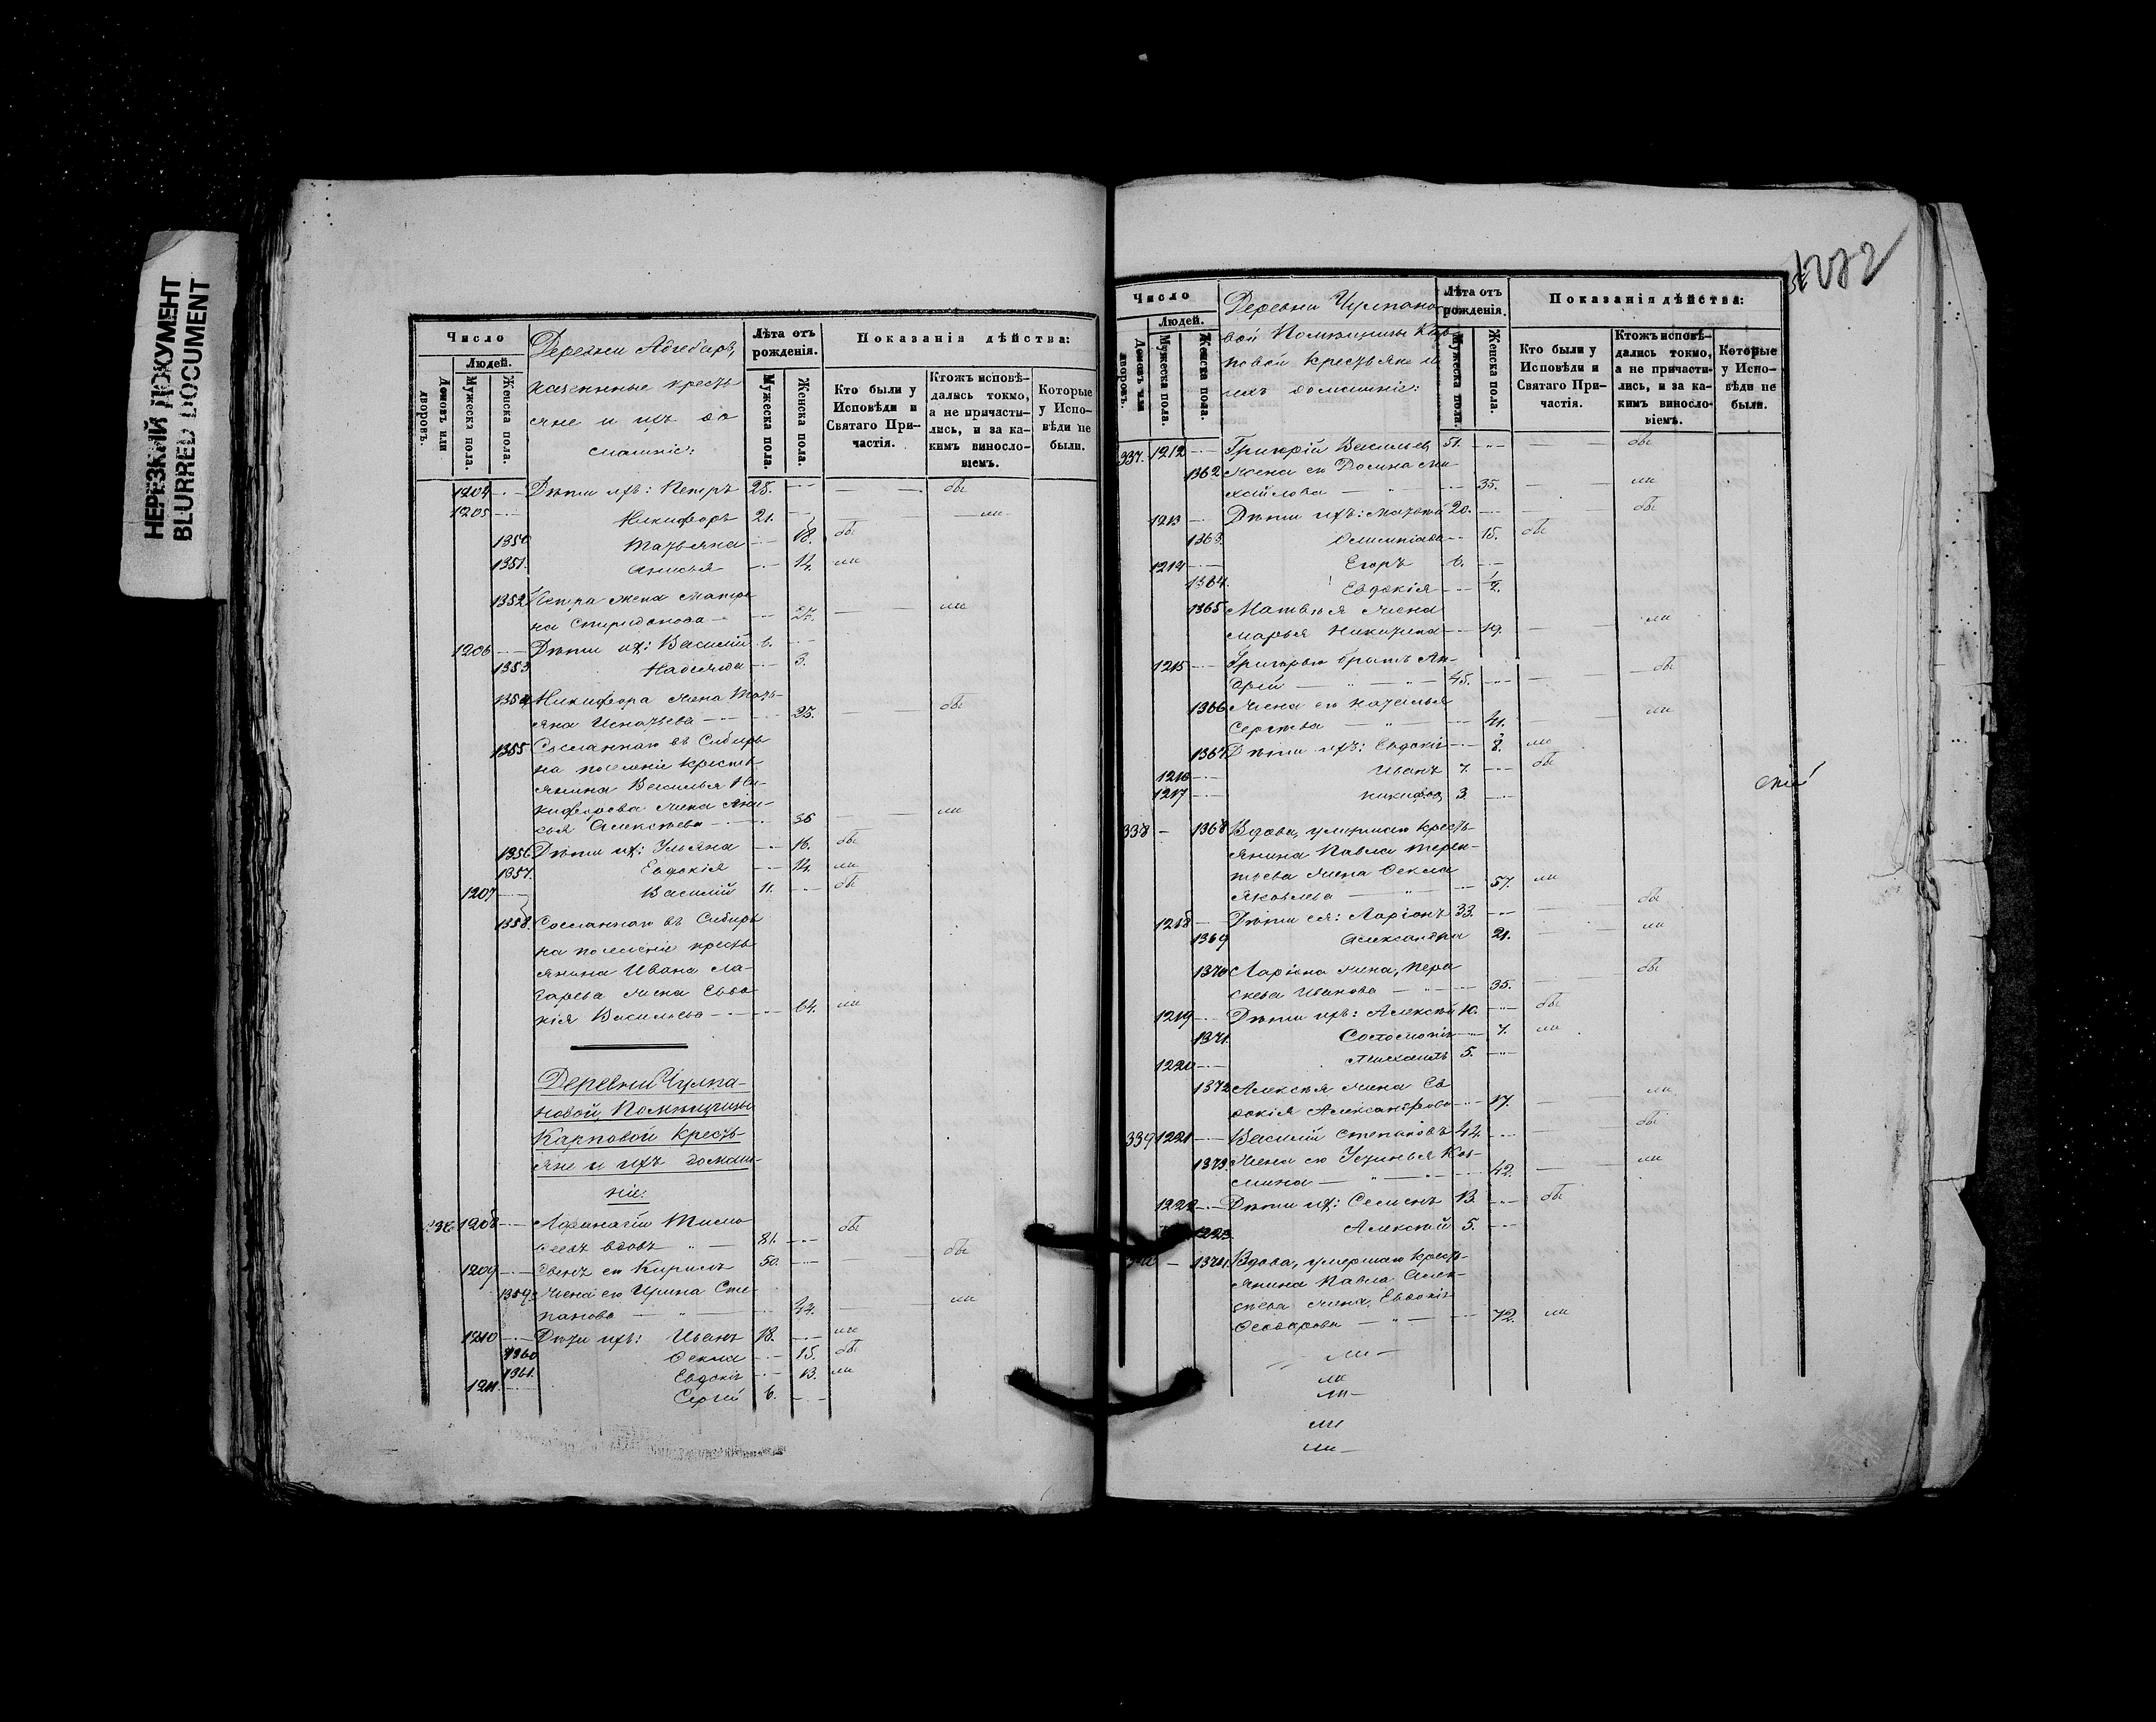 НЕРЕЗКИЙ ДОКУМЕНТ
BLURRED DOCUMENT
Число
Людей.
Домовъ или дворовъ.
Мужеска пола.
Женска пола.
Деревни
казенные кресть
яне и ихъ до
машніе:
Лѣта отъ рожденія.
Мужеска пола.
Женска пола.
Показанія дѣйства:
Кто были у Исповѣди и Святаго При-частія.
Ктожъ исповѣ-дались токмо, а не причасти-лись, и за ка-кимъ винословіемъ.
Которые у Испо-вѣди не были.
1204 Дѣти ихъ: Петръ 28. обе
1205 Никифоръ 21. ми
1350 Татьяна 18. обе
1351. Анисья 14. ми
1352 Петра жена Матре
на Спиридонова ми
1206 Дѣти их: Василій 6.
1353 Надежда 3.
1354 Никифора жена Тать-
яна Игнатьева 25. обе
1355 Сосланнаго въ Сибирь
на поселеніе кресть
янина Василья Ни-
кифорова жена Ани-
сья Алексѣева 36 ми
1356 Дѣти их: Ульяна 16. обе
1357. Евдокія 14. ми
1207 Василій 11. обе
1358. Сосланнаго въ Сибирь
на поселеніе кресть
янина Ивана Ла-
зарева жена Евдо
кія Васильева 64. ми
Деревни Чулпа-
новой, Помѣщицы
Карповой кресть-
яне и ихъ домаш-
ніе:
336 1208 Тимо
ѳеевъ вдовъ 81. обе
1209 Сынъ его Кирилъ 50. обе
1359. Жена его Ирина Сте
панова 42. ми
1210 Дѣти ихъ: Иванъ 18. ми
1360 Ѳекла 15. обе
1361. Евдокія 13. ми
1211 Сергій 6.
1272
Число
Людей.
Домовъ или дворовъ.
Мужеска пола.
Женска пола.
Деревни Чулпано
вой Помѣщицы Кар
повой крестьяне и
ихъ домашніе:
Лѣта отъ рожденія.
Мужеска пола.
Женска пола.
Показанія дѣйства:
Кто были у Исповѣди и Святаго При-частія.
Ктожъ исповѣ-дались токмо, а не причасти-лись, и за ка-кимъ винословіемъ.
Которые у Испо-вѣди не были.
337. 1212 Григорій Васильев 51. обе
1362 Жена его Домна Ми
хайлова 35. ми
1213 Дѣти ихъ: Матвѣй 20. обе
1363. Олимпіада 15. обе
1214 Егоръ 6.
1364. Евдокія 1/2.
1365 Матвѣя жена
Марья Никитина 19. ми
1215 Григорью братъ Ан-
дрей 45. обе
1366 Жена его Наталья
Сергѣева 41. ми
1367 Дѣти ихъ: Евдокія 8. ми
1216 Иванъ 7. обе
1217 Никифор 3.
338 1368 Вдова, умершаго кресть-
янина Павла Терен-
тьева жена Ѳекла
Яковлева 57. ми
1218 Дѣти ея: Ларіонъ 33. обе
1369 Александра 21. ми
1370 Ларіона жена, Пера
скева Иванова 35. обе
1219 Дѣти ихъ: Алексѣй 10. обе
1371. 7. ми
1220 Михаилъ 5.
1372 Алексѣя жена Ев
докія Александрова 17. ми
339 1221 Василій Степановъ 44. обе
1373 Жена его Устинья Коз-
мина 42. ми
1222 Дѣти их: Семенъ 13. обе
1223 Алексѣй 5.
340 1374. Вдова, умершаго кресть-
янина Павла Алек-
сѣева жена, Евдокія
Ѳеодорова 72. ми
ми
ми
ми
ми
ми